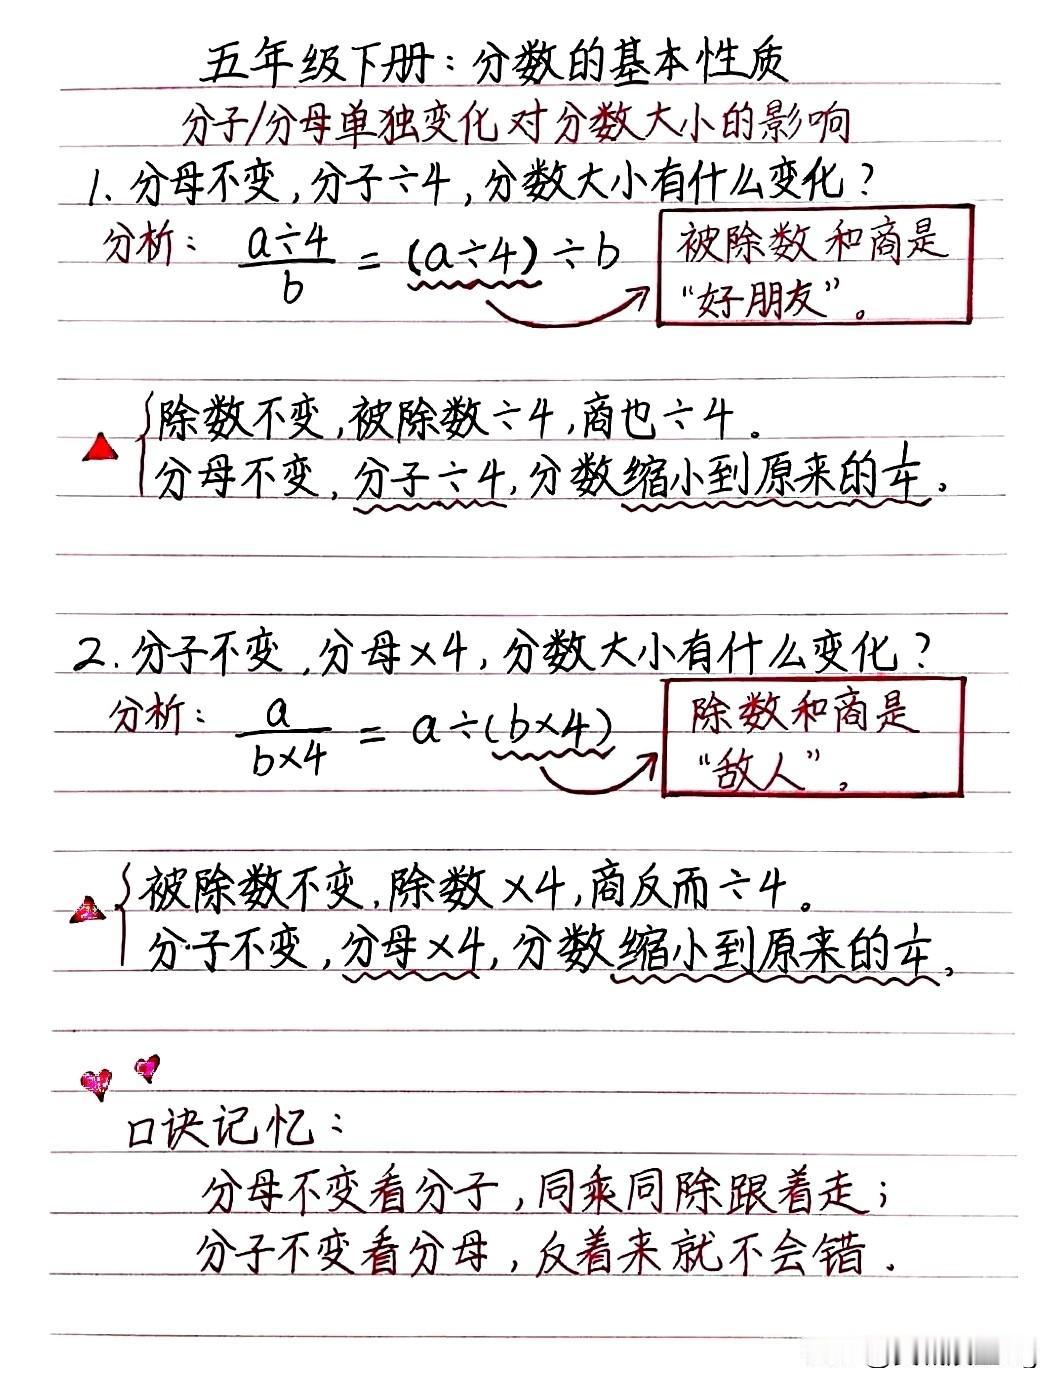 五年级下册：分数的基本性质
分子/分母单独变化对分数大小的影响
1. 分母不变，分子÷4，分数大小有什么变化？
分析： a÷4/b = (a÷4)÷b
被除数和商是
“好朋友”。
除数不变，被除数÷4，商也÷4。
分母不变，分子÷4，分数缩小到原来的1/4。
2. 分子不变，分母×4，分数大小有什么变化？
分析： a/b×4 = a÷(b×4)
除数和商是
“敌人”。
被除数不变，除数×4，商反而÷4。
分子不变，分母×4，分数缩小到原来的1/4。
口诀记忆：
分母不变看分子，同乘同除跟着走；
分子不变看分母，反着来就不会错.